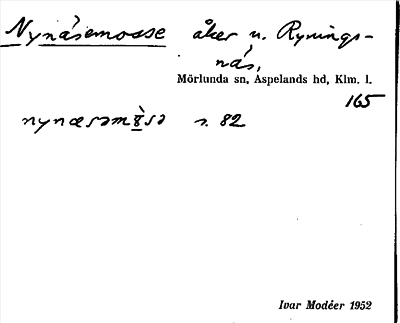 Nynäsemosse åker u. Rynings-
näs,
Mörlunda sn, Aspelands hd, Klm. l.
165
s. 82
Ivar Modéer 1952